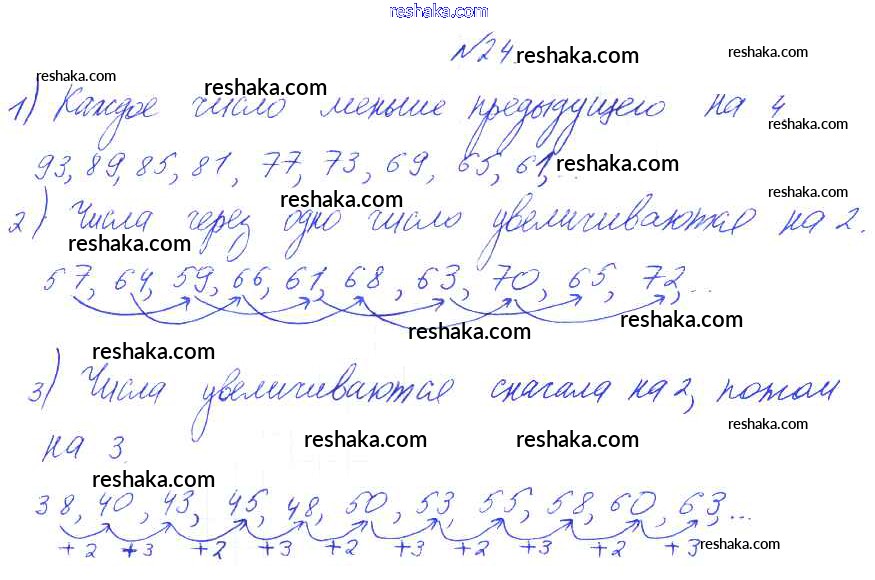 reshaka.com
№24 reshaka.com reshaka.com
reshaka.com reshaka.com
1) Каждое число меньше предыдущего на 4
reshaka.com
93, 89, 85, 81, 77, 73, 69, 65, 61, ... reshaka.com
reshaka.com reshaka.com
2) Числа через одно число увеличиваются на 2.
reshaka.com
57, 64, 59, 66, 61, 68, 63, 70, 65, 72, ...
reshaka.com reshaka.com
reshaka.com
3) Числа увеличиваются сначала на 2, потом
reshaka.com
на 3. reshaka.com reshaka.com
reshaka.com
38, 40, 43, 45, 48, 50, 53, 55, 58, 60, 63, ...
+2 +3 +2 +3 +2 +3 +2 +3 +2 +3 reshaka.com